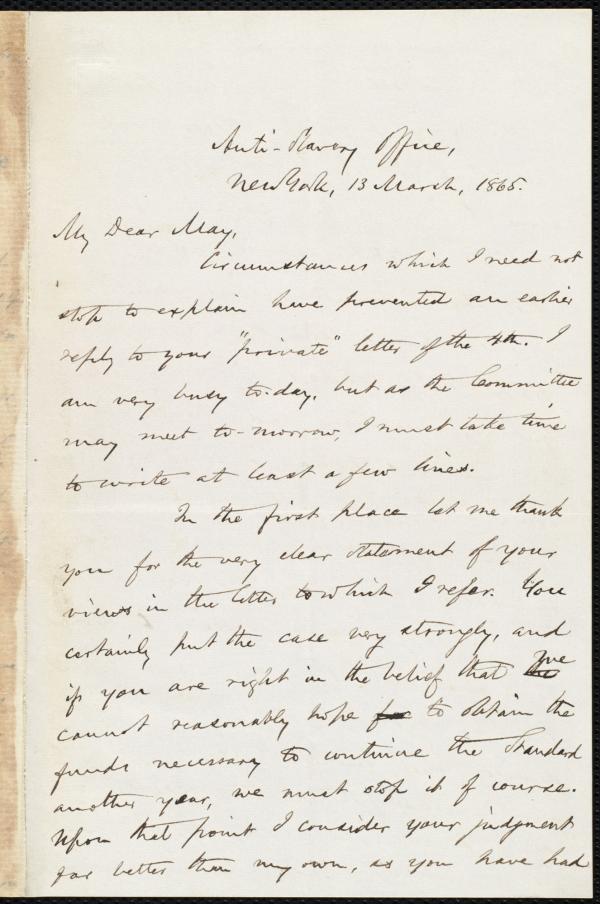 Anti-Slavery Office,
New York, 13 March, 1865.
My Dear May,
Circumstances which I need not
stop to explain have prevented an earlier
reply to your "private" letter of the 4th. I
am very busy to-day, but as the Committee
may meet to-morrow, I must take time
to write at least a few lines.
In the first place let me thank
you for the very clear statement of your
views in the letter to which I refer. You
certainly put the case very strongly, and
if you are right in the belief that we
cannot reasonably hope for to obtain the
funds necessary to continue the Standard
another year, we must stop it of course.
Upon that point I consider your judgment
far better than my own, as you have had